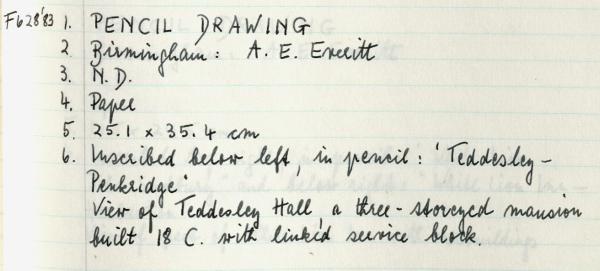 F628'83 1. PENCIL DRAWING
2. Birmingham: A. E. Everitt
3. N.D.
4. Paper
5. 25.1 x 35.4 cm
6. Inscribed below left, in pencil: 'Teddesley-
Penkridge'
View of Teddesley Hall a three-storeyed mansion
built 18 C. with linked service block.